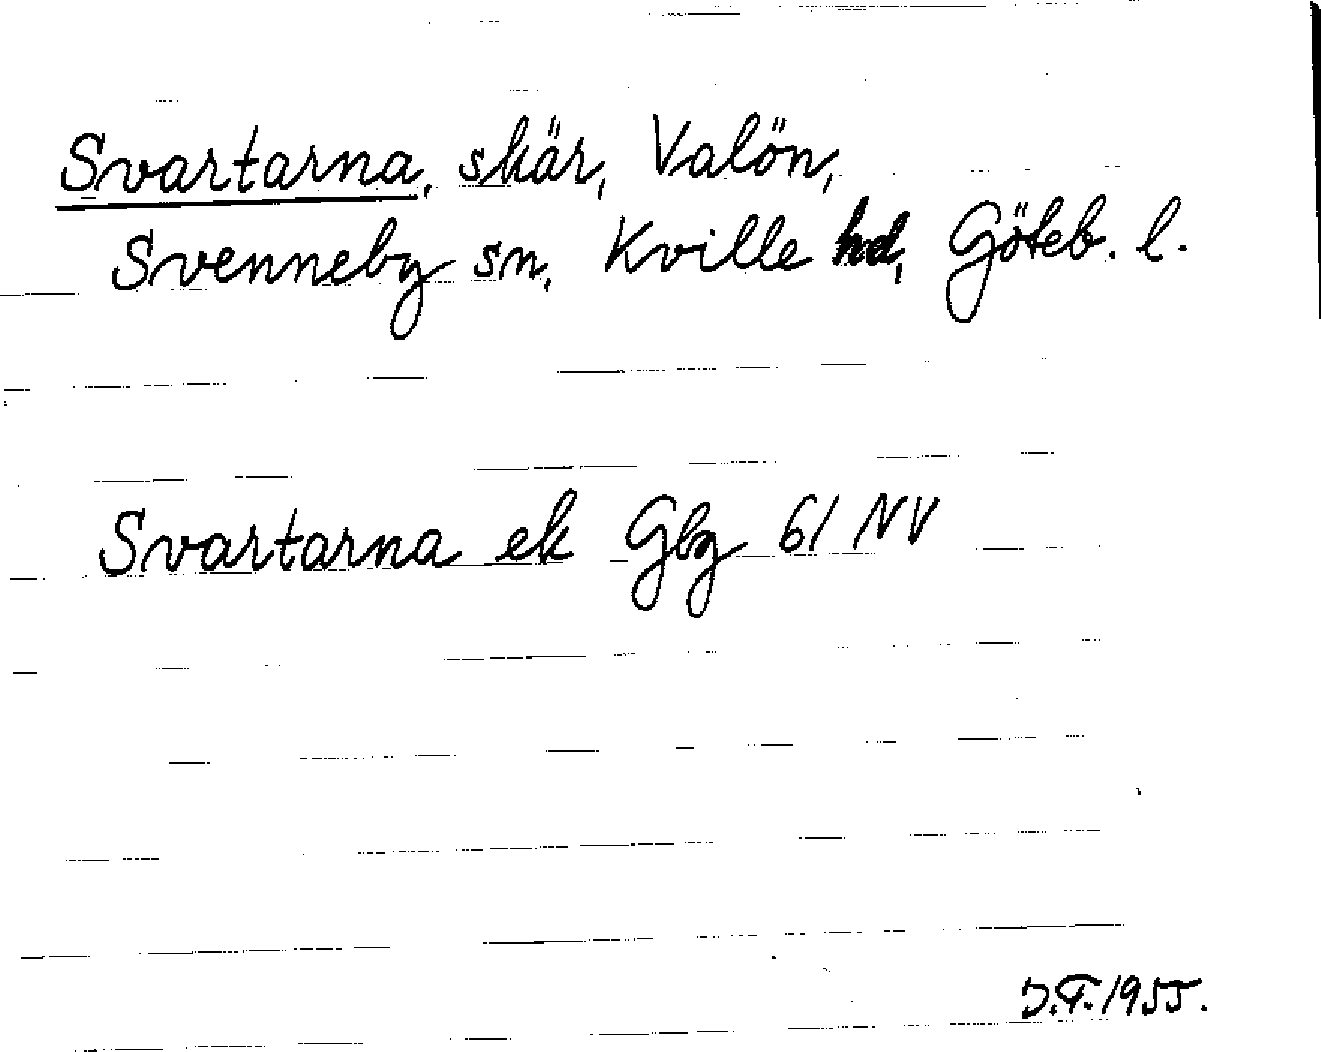 Svartarna, skär, Valön,
Svenneby sn, Kville hd, Göteb. l.
Svartarna ek Gbg 61 NV
J.F. 1955.